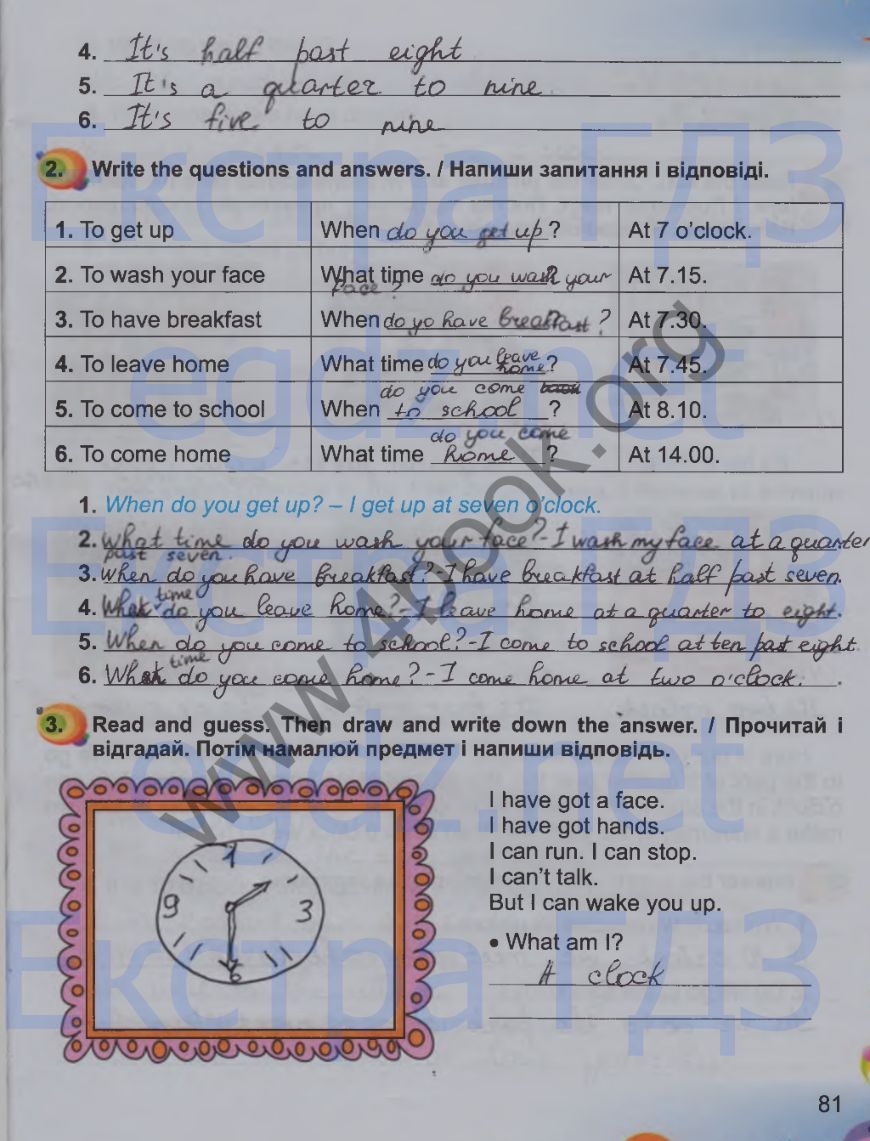 4. It's half past eight
5. It's a quarter to nine
6. It's five to nine
2. Write the questions and answers. / Напиши запитання і відповіді.
1. To get up When do you get up? At 7 o'clock.
2. To wash your face What time do you wash your face? At 7.15.
3. To have breakfast When do yo have breakfast? At 7.30.
4. To leave home What time do you leave home? At 7.45.
5. To come to school When do you come to school? At 8.10.
6. To come home What time do you come home? At 14.00.
1. When do you get up? – I get up at seven o'clock.
2. What time do you wash your face?-I wash my face at a quarter
past seven.
3. When do you have breakfast?-I have breakfast at half past seven.
4. What time do you leave home?-I leave home at a quarter to eight.
5. When do you come to school?-I come to school at ten past eight
6. What time do you come home?-I come home at two o'clock.
3. Read and guess. Then draw and write down the answer. / Прочитай і
відгадай. Потім намалюй предмет і напиши відповідь.
I have got a face.
I have got hands.
I can run. I can stop.
I can't talk.
But I can wake you up.
• What am I?
A clock
9 3
6
81
Екстра ГДЗ
egdz.net
Екстра ГДЗ
egdz.net
Екстра ГДЗ
www.4book.org